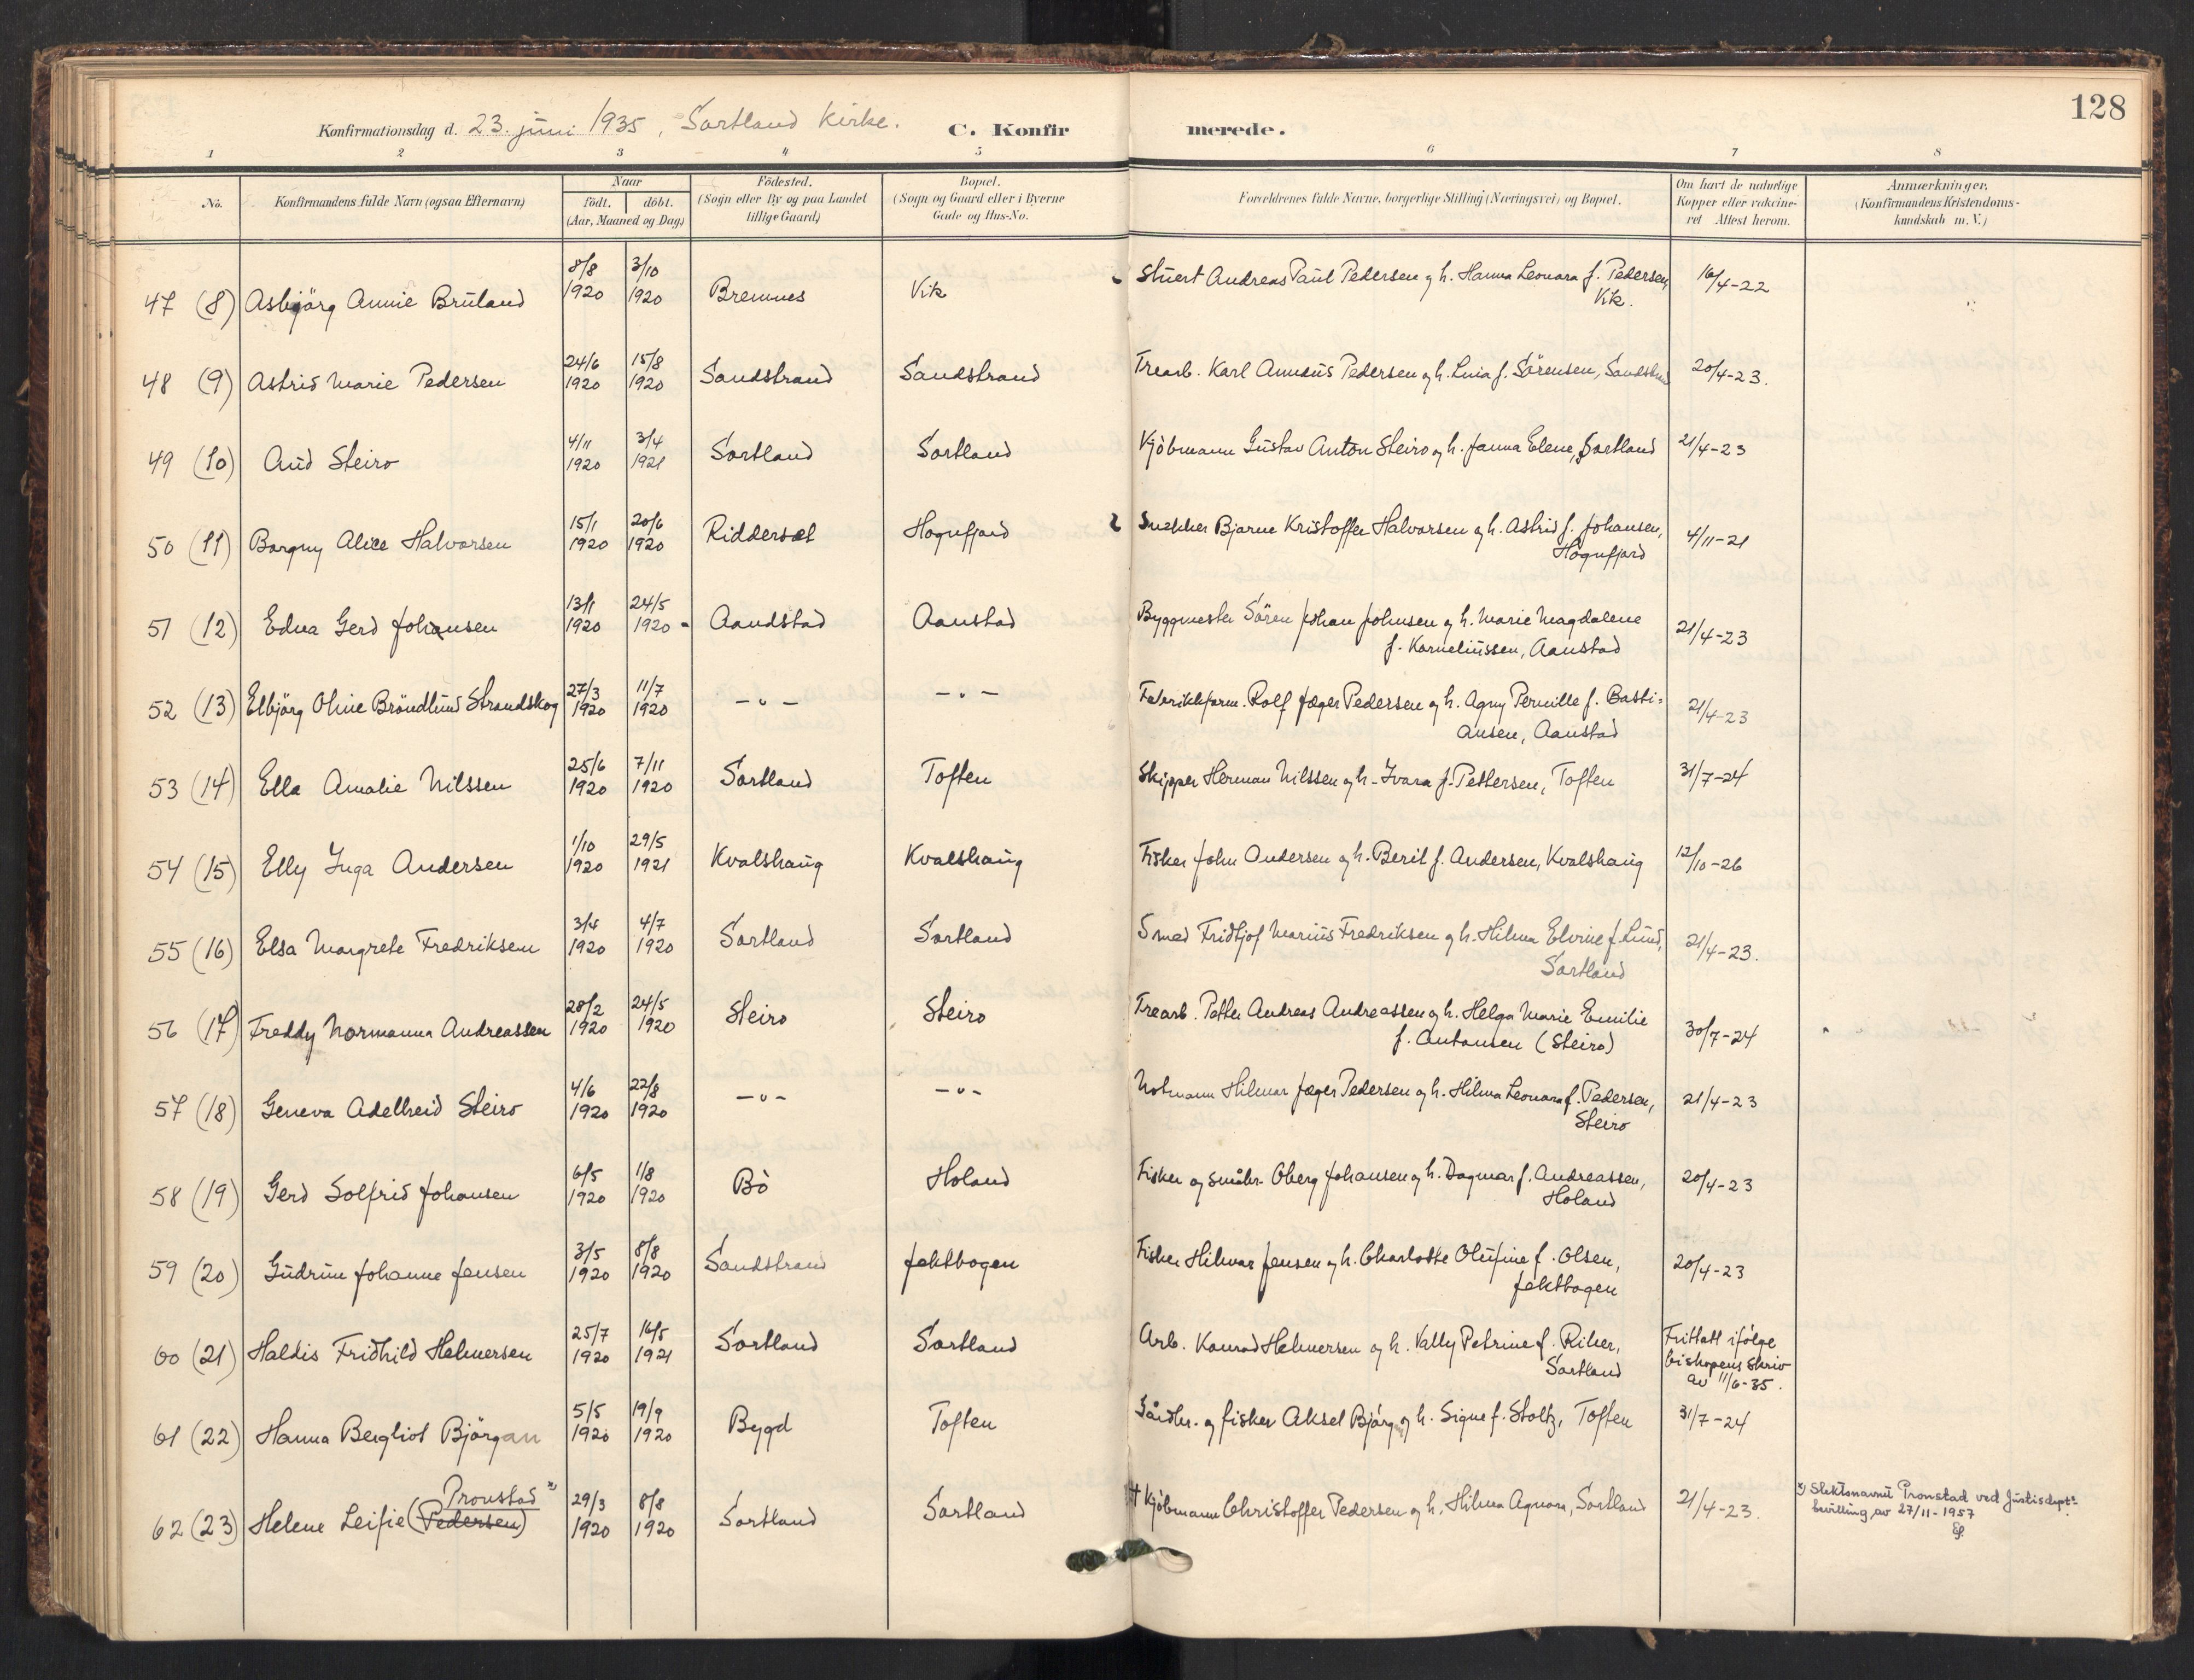 128
Konfirmationsdag d. 23. juni 1935, Sortland Kirke. C. Konfirmerede.
1 2 3 4 5 6 7 8
No. Konfirmandens fulde Navn (ogsaa Efternavn) Naar födt. döbt. (Aar, Maaned og Dag) Födested. (Sogn eller By og paa Landet tillige Gaard) Bopæl. (Sogn og Gaard eller i Byerne Gade og Hus-No. Forældrenes fulde Navne, borgerlige Stilling (Næringsvei) og Bopæl. Om havt de naturlige Kopper eller vakcineret Attest herom. Anmærkninger. (Konfirmandens Kristendomskundskab m. V.)
47 (8) Asbjörg Annie Bruland 8/8 1920 3/10 1920 Bremnes Vik Stuert Andreas Paul Pedersen og h. Hanna Leonora f. Pedersen, Vik. 16/4-22
48 (9) Astrid Marie Pedersen 24/6 1920 15/8 1920 Sandstrand Sandstrand Trearb. Karl Amndus Pedersen og h. Luia f. Sörensen, Sandstrand 20/4-23.
49 (10) Aud Steiro 4/11 1920 3/4 1921 Sortland Sortland Kjöbmann Gustav Anton Steiro og h. Janna Elene, Sortland 21/4-23
50 (11) Borgny Alice Halvorsen 15/1 1920 20/6 1920 Riddersæt Hognfjord Snekker Bjarne Kristoffer Halvorsen og h. Astrid f. Johansen, Hognfjord 4/11-21
51 (12) Edna Gerd Johansen 13/1 1920 24/5 1920 Aandstad Aanstad Byggmester Sören Johan Johnsen og h. Marie Magdalene f. Korneliussen, Aanstad 21/4-23
52 (13) Elbjörg Oline Bröndlund Strandskog 27/3 1920 11/7 1920 - " - - " - Fabrikkform. Rolf Jæger Pedersen og h. Agny Pernille f. Basti=ansen, Aanstad 21/4-23
53 (14) Ella Amalie Nilssen 25/6 1920 7/11 1920 Sortland Toften Skipper Herman Nilssen og h. Ivara f. Pettersen, Toften 31/7-24
54 (15) Elly Inga Andersen 1/10 1920 29/5 1921 Kvalshaug Kvalshaug Fisker John Andersen og h. Berit f. Andersen, Kvalshaug 12/10-26
55 (16) Elsa Margrete Fredriksen 3/4 1920 4/7 1920 Sortland Sortland Smed Fridtjof Marius Fredriksen og h. Hilma Elvine f. Lund, Sortland 21/4-23.
56 (17) Freddy Normanna Andreassen 28/2 1920 24/5 1920 Steiro Steiro Trearb. Petter Andreas Andreassen og h. Helga Marie Emilie f. Antonsen (Steiro) 30/7-24
57 (18) Geneva Adelheid Steiro 4/6 1920 22/8 1920 - " - - " - Notmann Hilmar Jæger Pedersen og h. Hilma Leonora f. Pedersen, Steiro 21/4-23
58 (19) Gerd Solfrid Johansen 6/5 1920 1/8 1920 Bö Holand Fisker og småbr. Oberg Johansen og h. Dagmar f. Andreassen, Holand 20/4-23
59 (20) Gudrun Johanne Jensen 3/5 1920 8/8 1920 Sandstrand Jektbogen Fisker Hilmar Jensen og h. Charlotte Olufine f. Olsen, Jektbogen 20/4-23
60 (21) Haldis Fridhild Helmersen 25/7 1920 16/5 1921 Sortland Sortland Arb. Konrad Helmersen og h. Vally Petrine f. Riker, Sortland Frittatt ifölge biskopens skriv av 11/6-35.
61 (22) Hanna Bergliot Björgan 5/5 1920 19/9 1920 Bygd Toften Gårdbr. og fisker Aksel Björg og h. Signe f. Stoltz, Toften 31/7-24
Pronstad x)
62 (23) Helene Leifie (Pedersen) 29/3 1920 8/8 1920 Sortland Sortland † Kjöbmann Christoffer Pedersen og h. Hilma Agnora, Sortland 21/4-23. x) Slektsnavnet Pronstad ved Justisdept.
bevilling av 27/11-1957